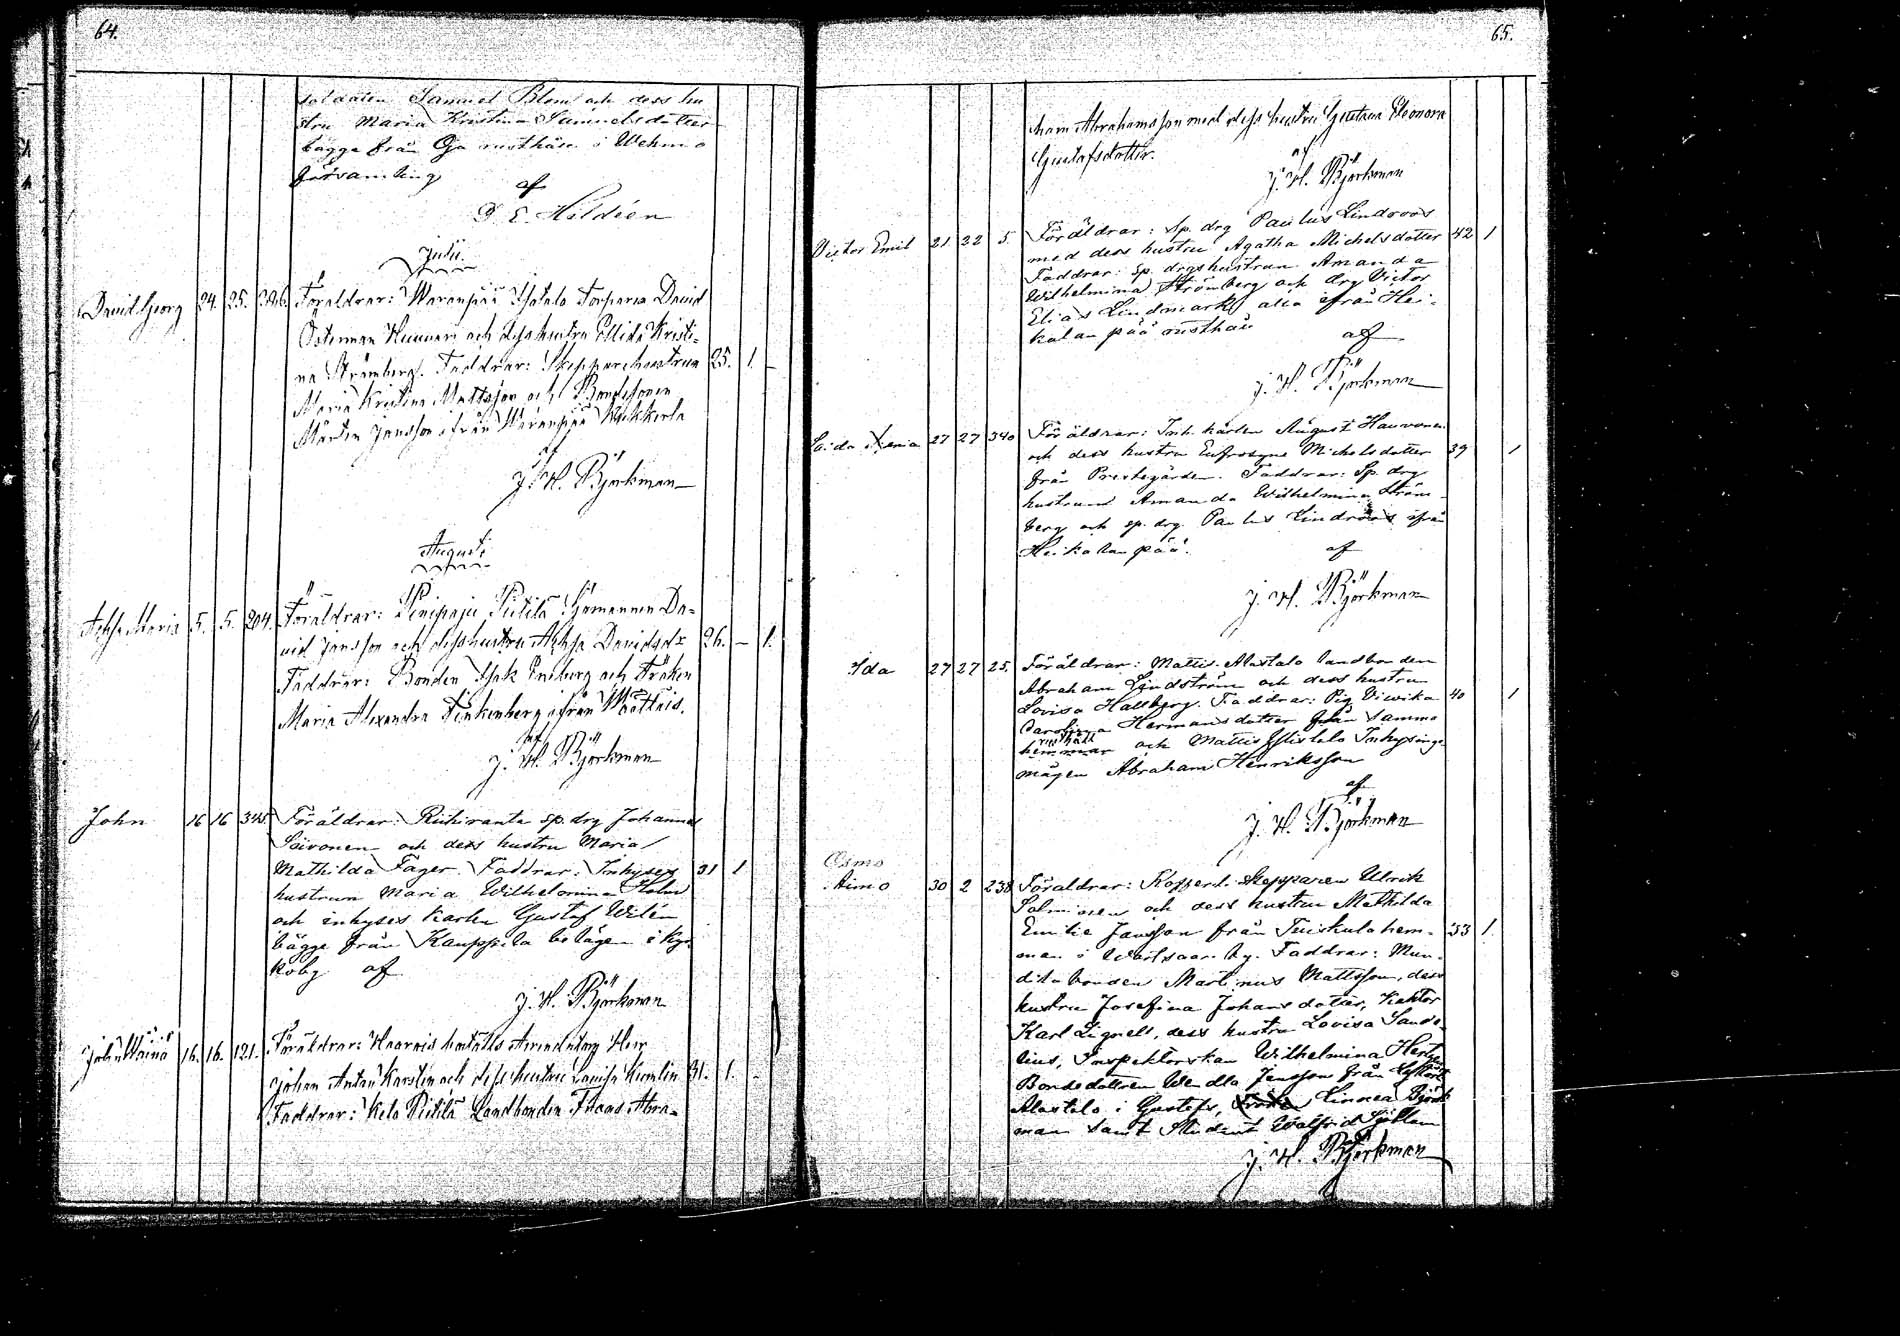 64.
soldaten Samuel Blom och dess hu
stru Maria Kristina Samuelsdotter
bägge från Oja rusthåll i Wehmo
församling
af
E. Hildéen
Julii.
David Georg 24. 25. 326. Föräldrar: Waranpää Ylötalo Torparen David
Österman Hemmari och dess hustru Kristi-
na Strömberg. Faddrar: Skepparehustrun 25. 1. -
Maria Kristina Mattsson och Bondesonen
Mårten Jansson ifrån Waranpää Kukkerla
af
J. H. Björkman
Augusti
Maria 5. 5. 204. Föräldrar: Pinipaju Pietilä Sjömannen Da-
vid Jansson och dess hustru Davidsdr 26. - 1.
Faddrar: Bonden Isak Eneberg och Fröken
Maria Alexandra Finkenberg ifrån Waattais.
af
J. H. Björkman
John 16 16 345 Föräldrar: Riihiranta sp. drg Johannes
Soivonen och dess hustru Maria
Mathilda Fager. Faddrar: Inhyses 31 1
hustrun Maria Wilhelmina Holm
och inhyses karlen Gustaf Wilén
bägge från Kauppila belägen i kyr
koby af
J. H. Björkman
John Wäinö 16. 16. 121. Föräldrar: Haarois boställs Arrendatorn Herr
Johan Anton Karsten och dess hustru Lovisa Kumlin 31. 1. -
Faddrar: Kela Pietilä Landbonden Abra-
65.
ham Abrahamsson med dess hustru Gustava Eleonora
Gustafsdotter.
af
J. H. Björkman
Victor Emil 21 22 5. Föräldrar: Sp. drg Paulus Lindroos 42 1
med dess hustru Agatha Michelsdotter
Faddrar: Sp. drgshustrun Amanda
Wilhelmina Strömberg och drg Victor
Elias Lindmark alla ifrån Hei-
kalanpää rusthåll
af
J. H. Björkman
27 27 340 Föräldrar: Inh. karlen August Hauvonen
och dess hustru Eufrosyne Michelsdotter 39 1
från Prestegården. Faddrar: Sp. drg
hustrun Amanda Wilhelmina Ström-
berg och sp. drg. Paulus Lindroos ifrån
Heikalanpää.
af
J. H. Björkman
Ida 27 27 25 Föräldrar: Mattis Alastalo landbonden
Abraham Lindström och dess hustru
Lovisa Hallberg. Faddrar: Pig. Viwika 40 1
Carolina Hermansdotter från samma
rusthåll
hemman och Mattis Ylistalo Inhysinge
mågen Abraham Henriksson
af
J. H. Björkman
Osmo
Aimo 30 2 238 Föräldrar: Kofferd. Skepparen Ulrik
Salminen och dess hustru Mathilda
Emilie Jansson från Tuiskula hem- 33 1.
man i Wartsaari by. Faddrar: Mun-
dila bonden Martinus Mattsson, dess
hustru Josefina Johansdotter, Kantor
Karl Lignell, dess hustru Lovisa Sande-
lius, Inspektörskan Wilhelmina Hertzen
Bondedottren Wendla Jansson från
Alastalo i Gustafs, Fröken Linnea Björk
man samt Student Walfrid
af
J. H. Björkman